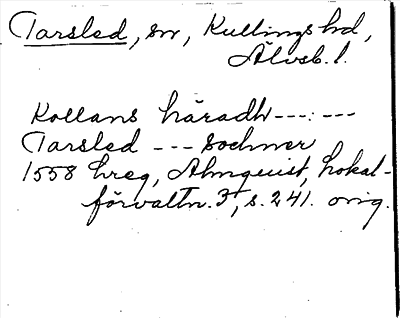 Tarsled, sn, Kullings hd,
Älvsb. l.
Kollans häradh ---:---
Tarsled --- sochner
1558 hreg, Almquist, Lokal-
förvaltn. 3, s. 241. orig.